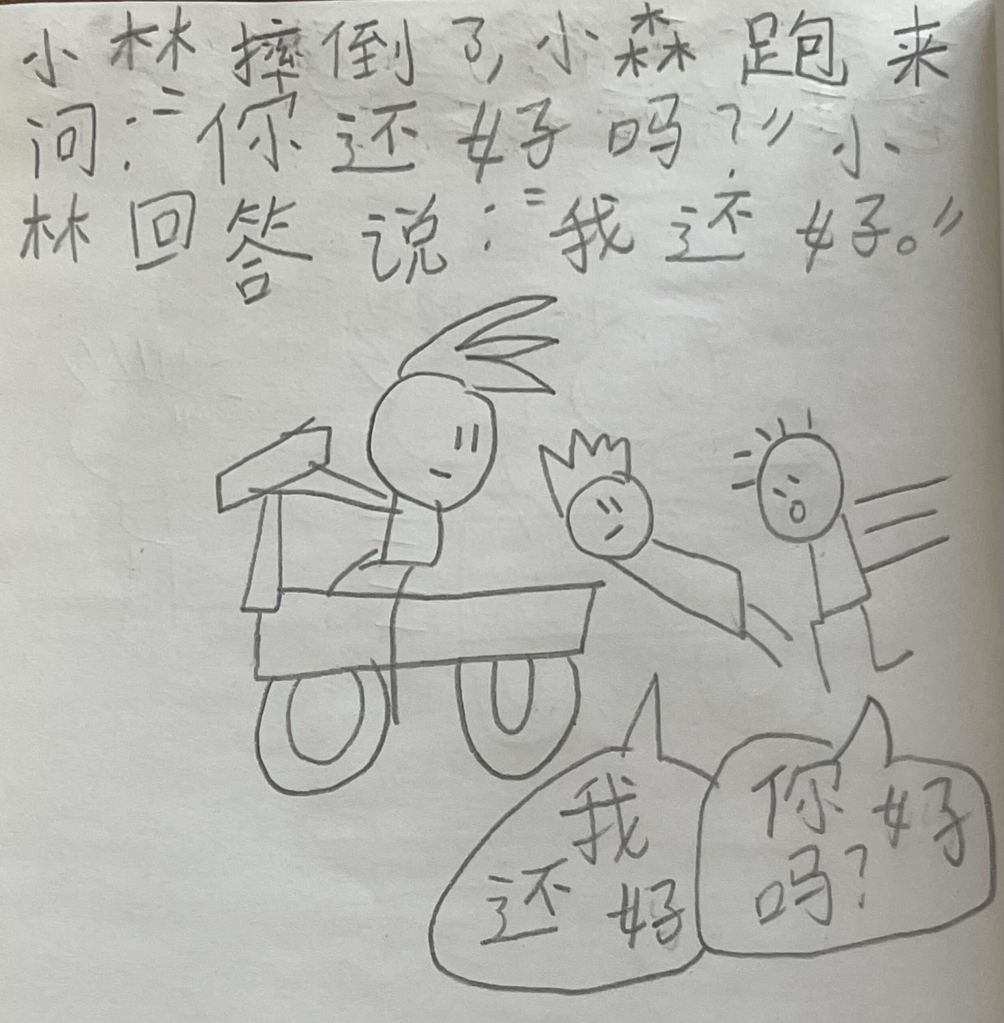 小林摔倒了,小森跑来
问:“你还好吗?”小
林回答说:“我还好。”
我
还好
你好
吗?